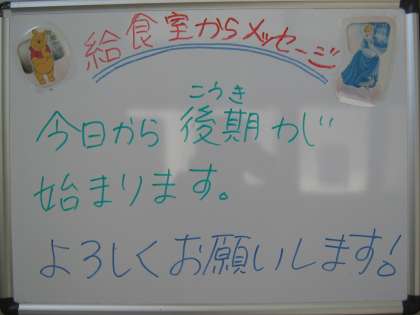 給食室からメッセージ
こうき
今日から後期が
始まります。
よろしくお願いします!